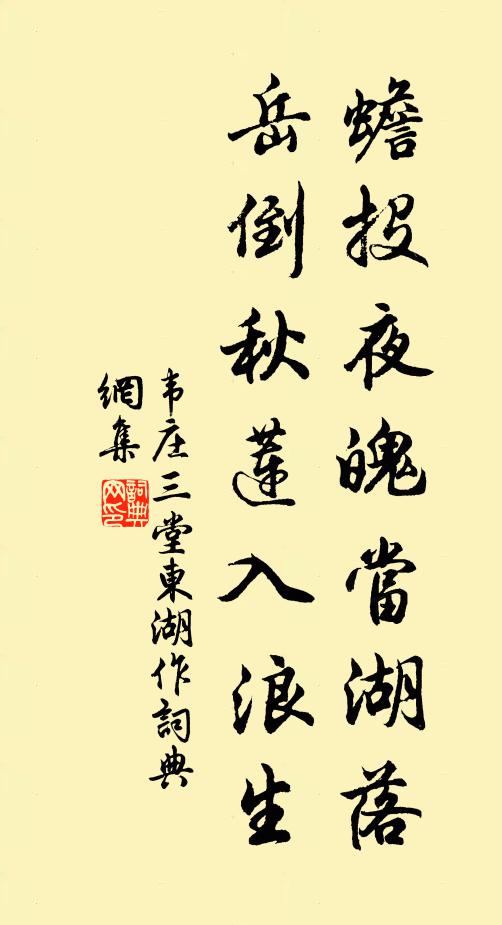 蟾投夜魄當湖落
岳倒秋蓮入浪生
韦庄三堂東湖作詞典
網集
詞典
网印